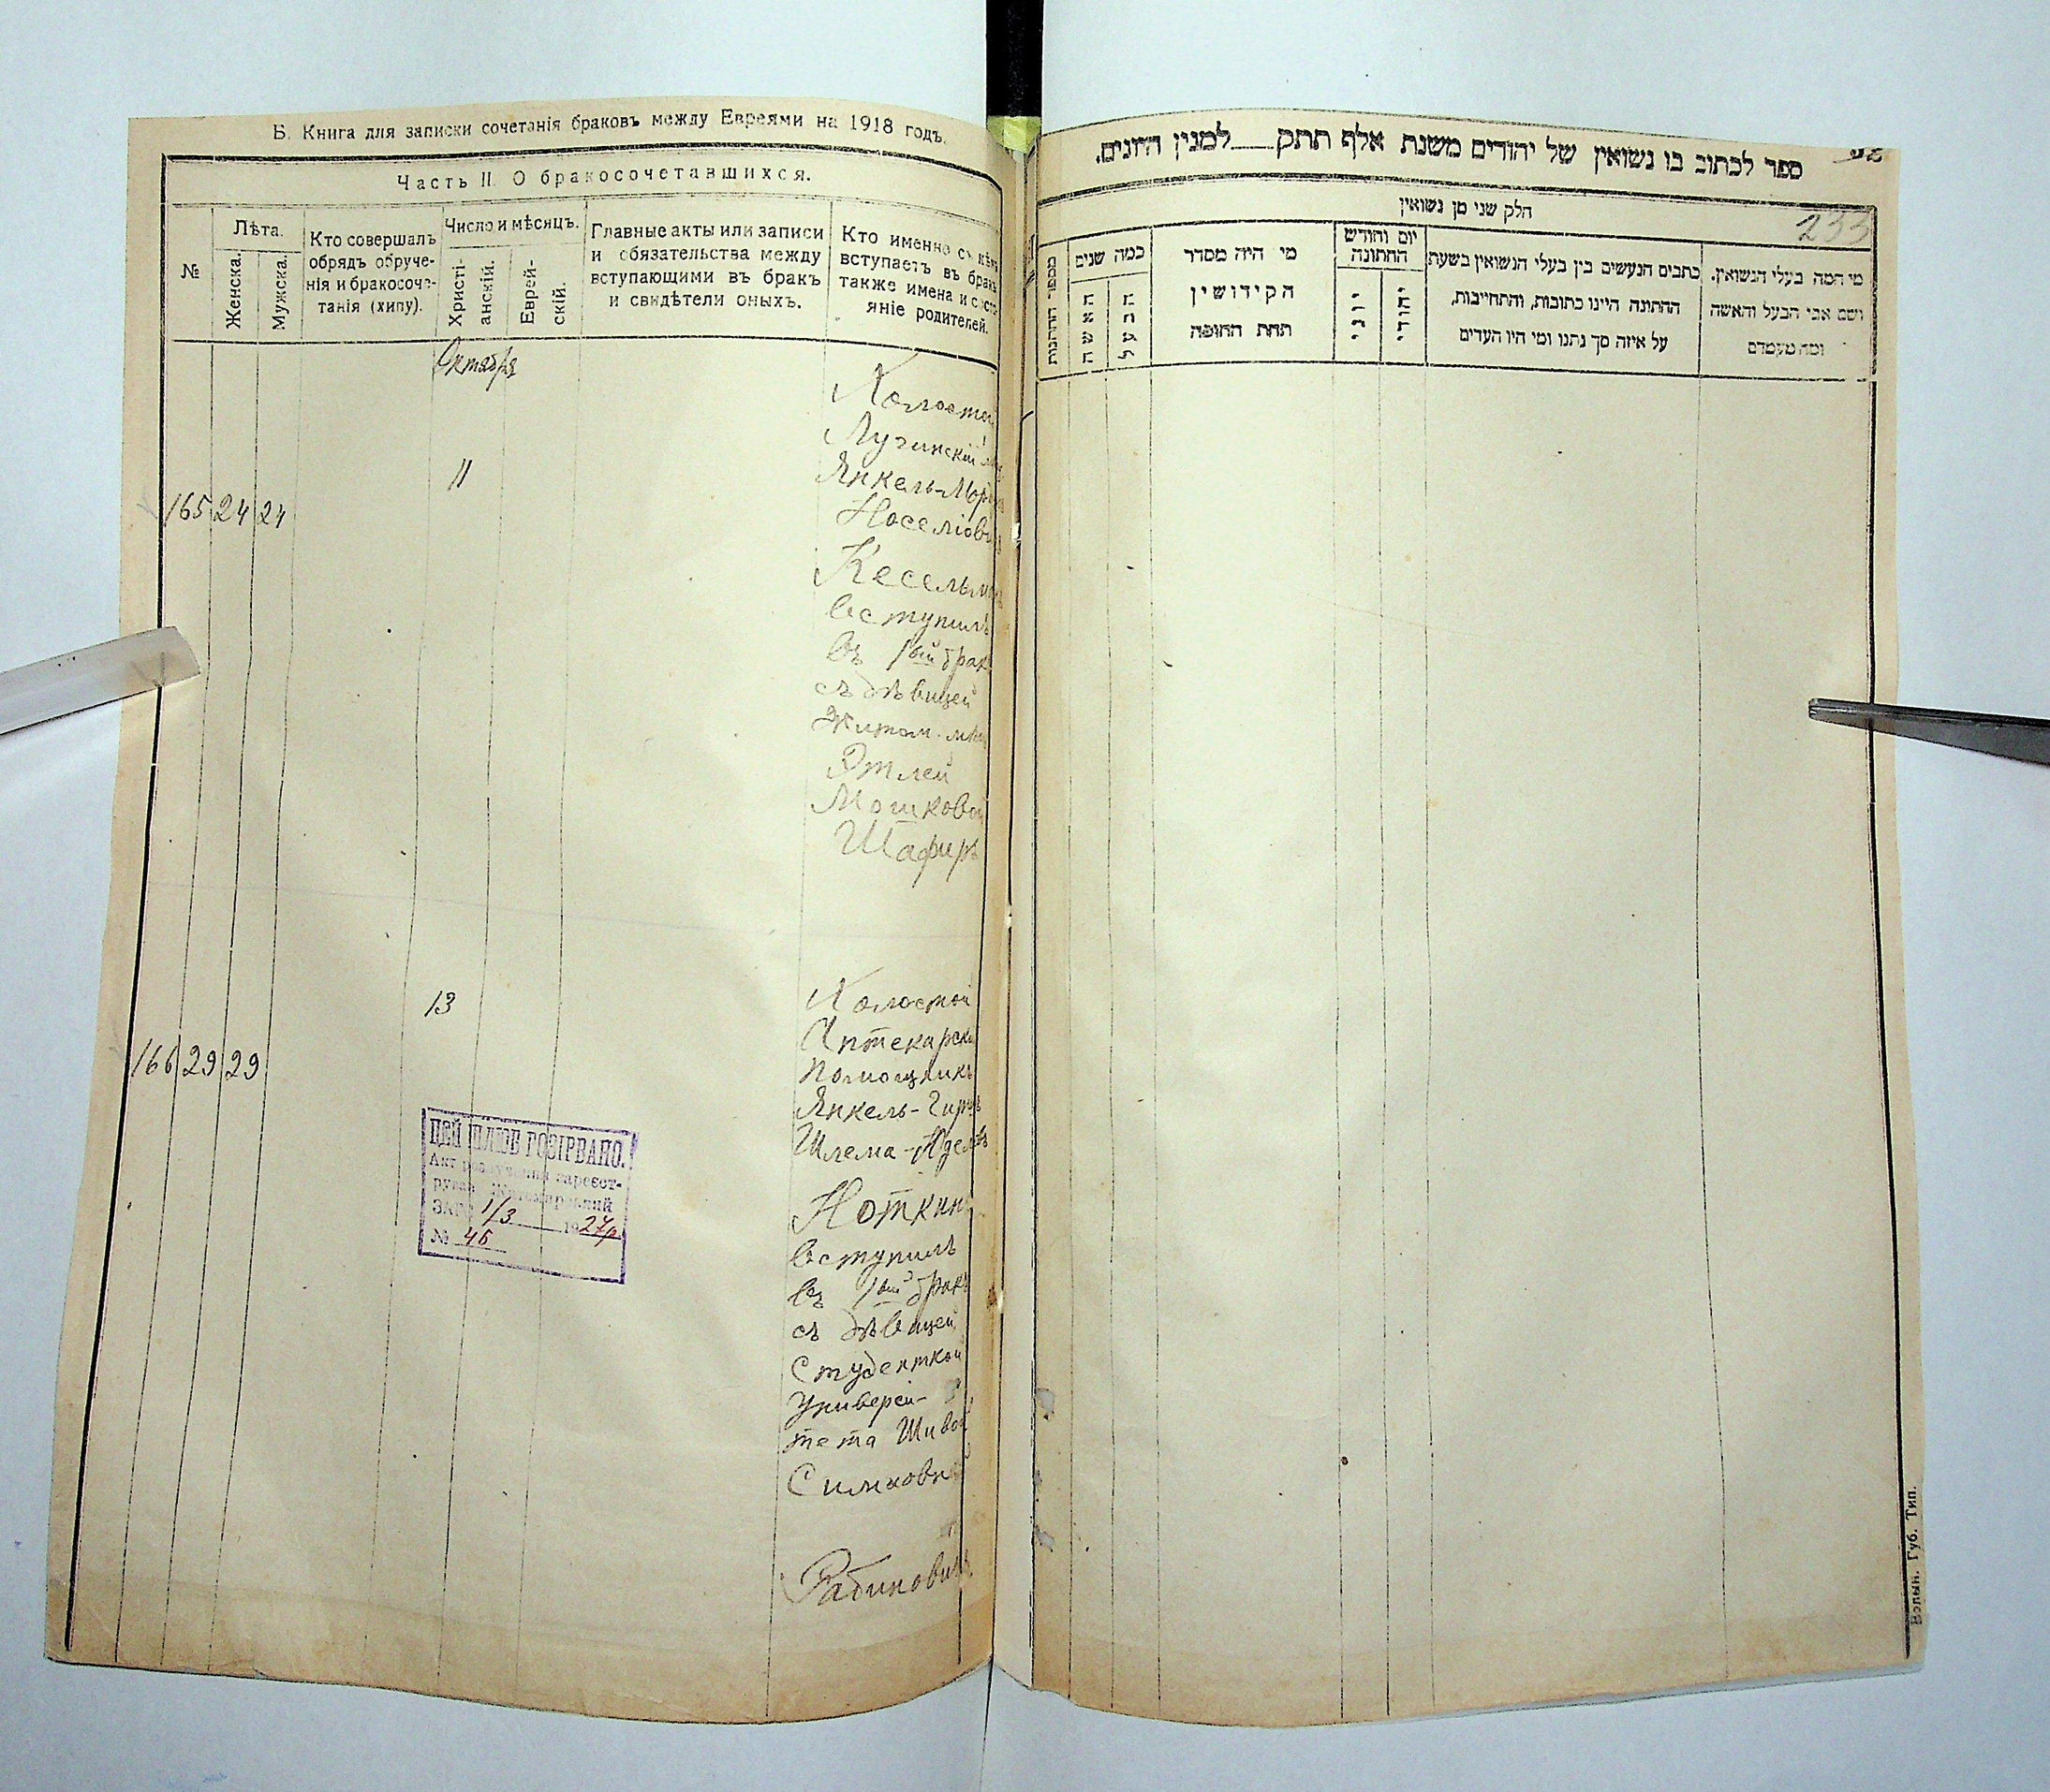 Б. Книга для записки сочетанія браковъ между Евреями на 1918 годъ.
Часть II. О бракосочетавшихся.
№
Лѣта.
Женска.
Мужска.
Кто совершалъ
обрядъ обруче-
нія и бракосоче-
танія (хипу).
Число и мѣсяцъ.
Христі-
анскій.
Еврей-
скій.
Главные акты или записи
и обязательства между
вступающими въ бракъ
и свидѣтели оныхъ.
Кто именно съ кѣмъ
вступаетъ въ бракъ
также имена и состо-
яніе родителей.
Октября
165 24 24
11
Холостой
Лугинскій
Янкель-Мор
Носеліов
Кесельм
вступилъ
въ 1ый бракъ
съ дѣвицей
Житом. мѣщ
Этлей
Мошковой
Шафиръ
166 29 29
13
Холостой
Аптекарскі
помощникъ
Янкель-Гирш
Шлема-Юдел
Ноткин
вступилъ
въ 1ый бракъ
съ дѣвицей
Студенткой
Универси-
тета Шивой
Симховной
Рабинович
ЦЕЙ ШЛЮБ РОЗІРВАНО.
Акт розлучення зареєст-
рував Житомирський
ЗАГС 1/3 1927р
№ 46
ספר לכתוב בו נשואין של יהודים משנת אלף תתק למנין היונים.
233
חלק שני מן נשואין
מספר החתונות
כמה שנים
האשה
הבעל
מי היה מסדר
הקידושין
תחת החופה
יום וחודש
החתונה
יוני
יהודי
כתבים הנעשים בין בעלי הנשואין בשעת
החתונה היינו כתובות, והתחייבות,
על איזה סך נתנו ומי היו העדים
מי המה בעלי הנשואין.
ושם אבי הבעל והאשה
ומה מעמדם
Волын. Губ. Тип.